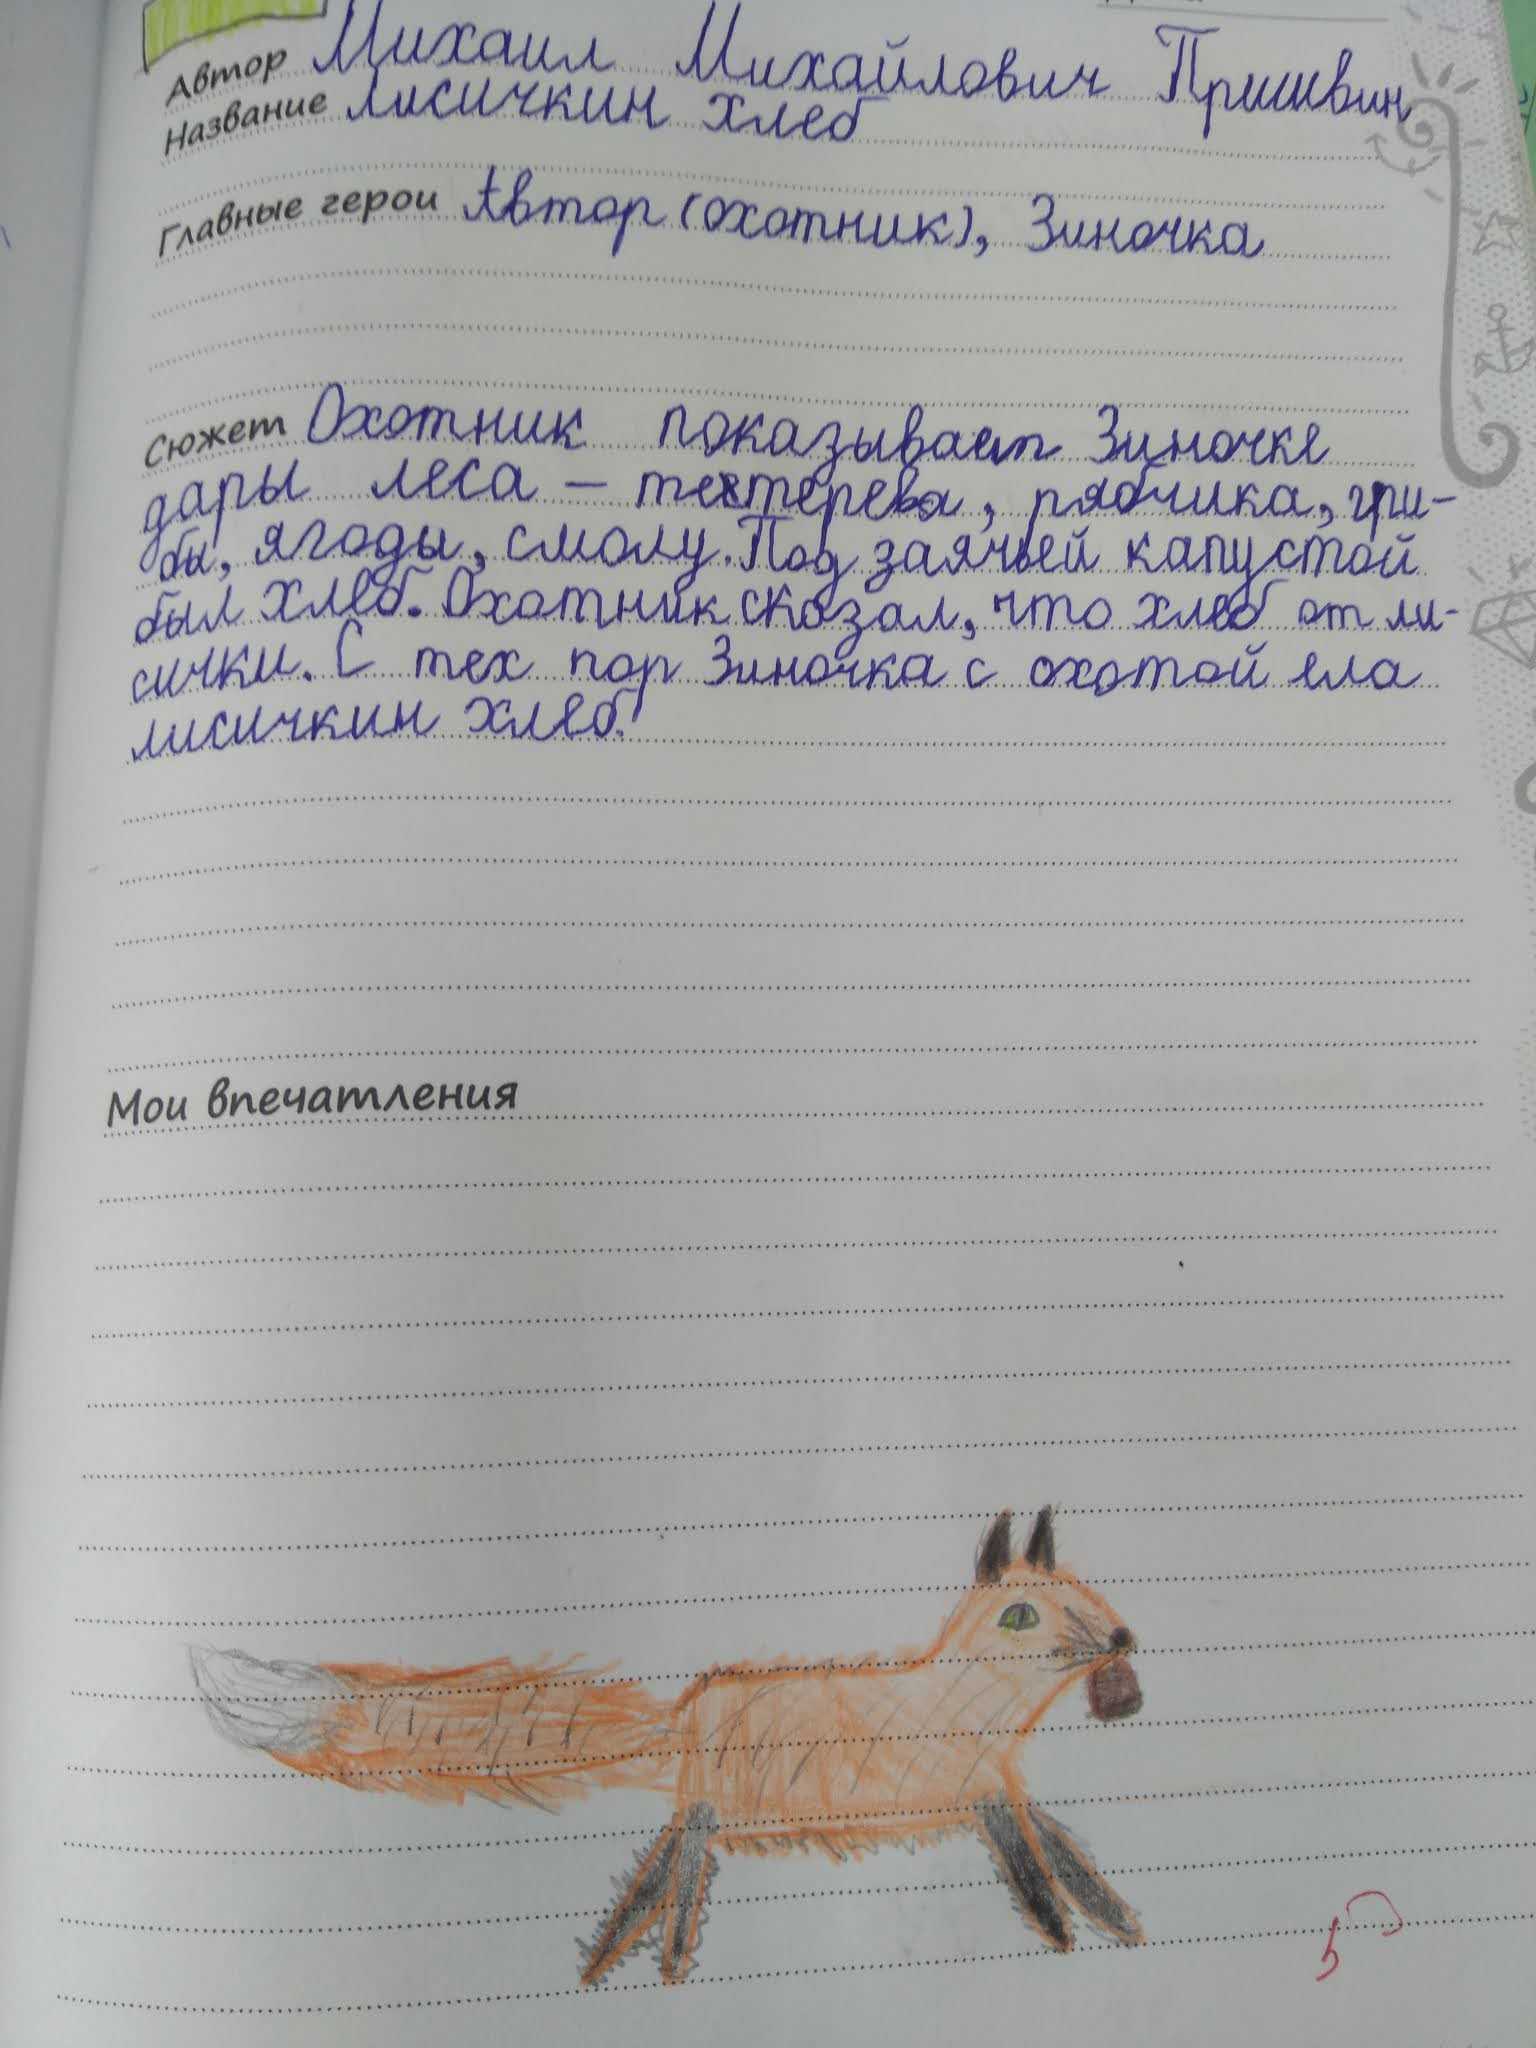 Автор Михаил Михайлович Пришвин
Название Лисичкин хлеб
Главные герои Автор (охотник), Зиночка
Сюжет Охотник показывает Зиночке
дары леса – тетерева, рябчика, гри-
бы, ягоды, смолу. Под заячьей капустой
был хлеб. Охотник сказал, что хлеб от ли-
сички. С тех пор Зиночка с охотой ела
лисичкин хлеб.
Мои впечатления
5